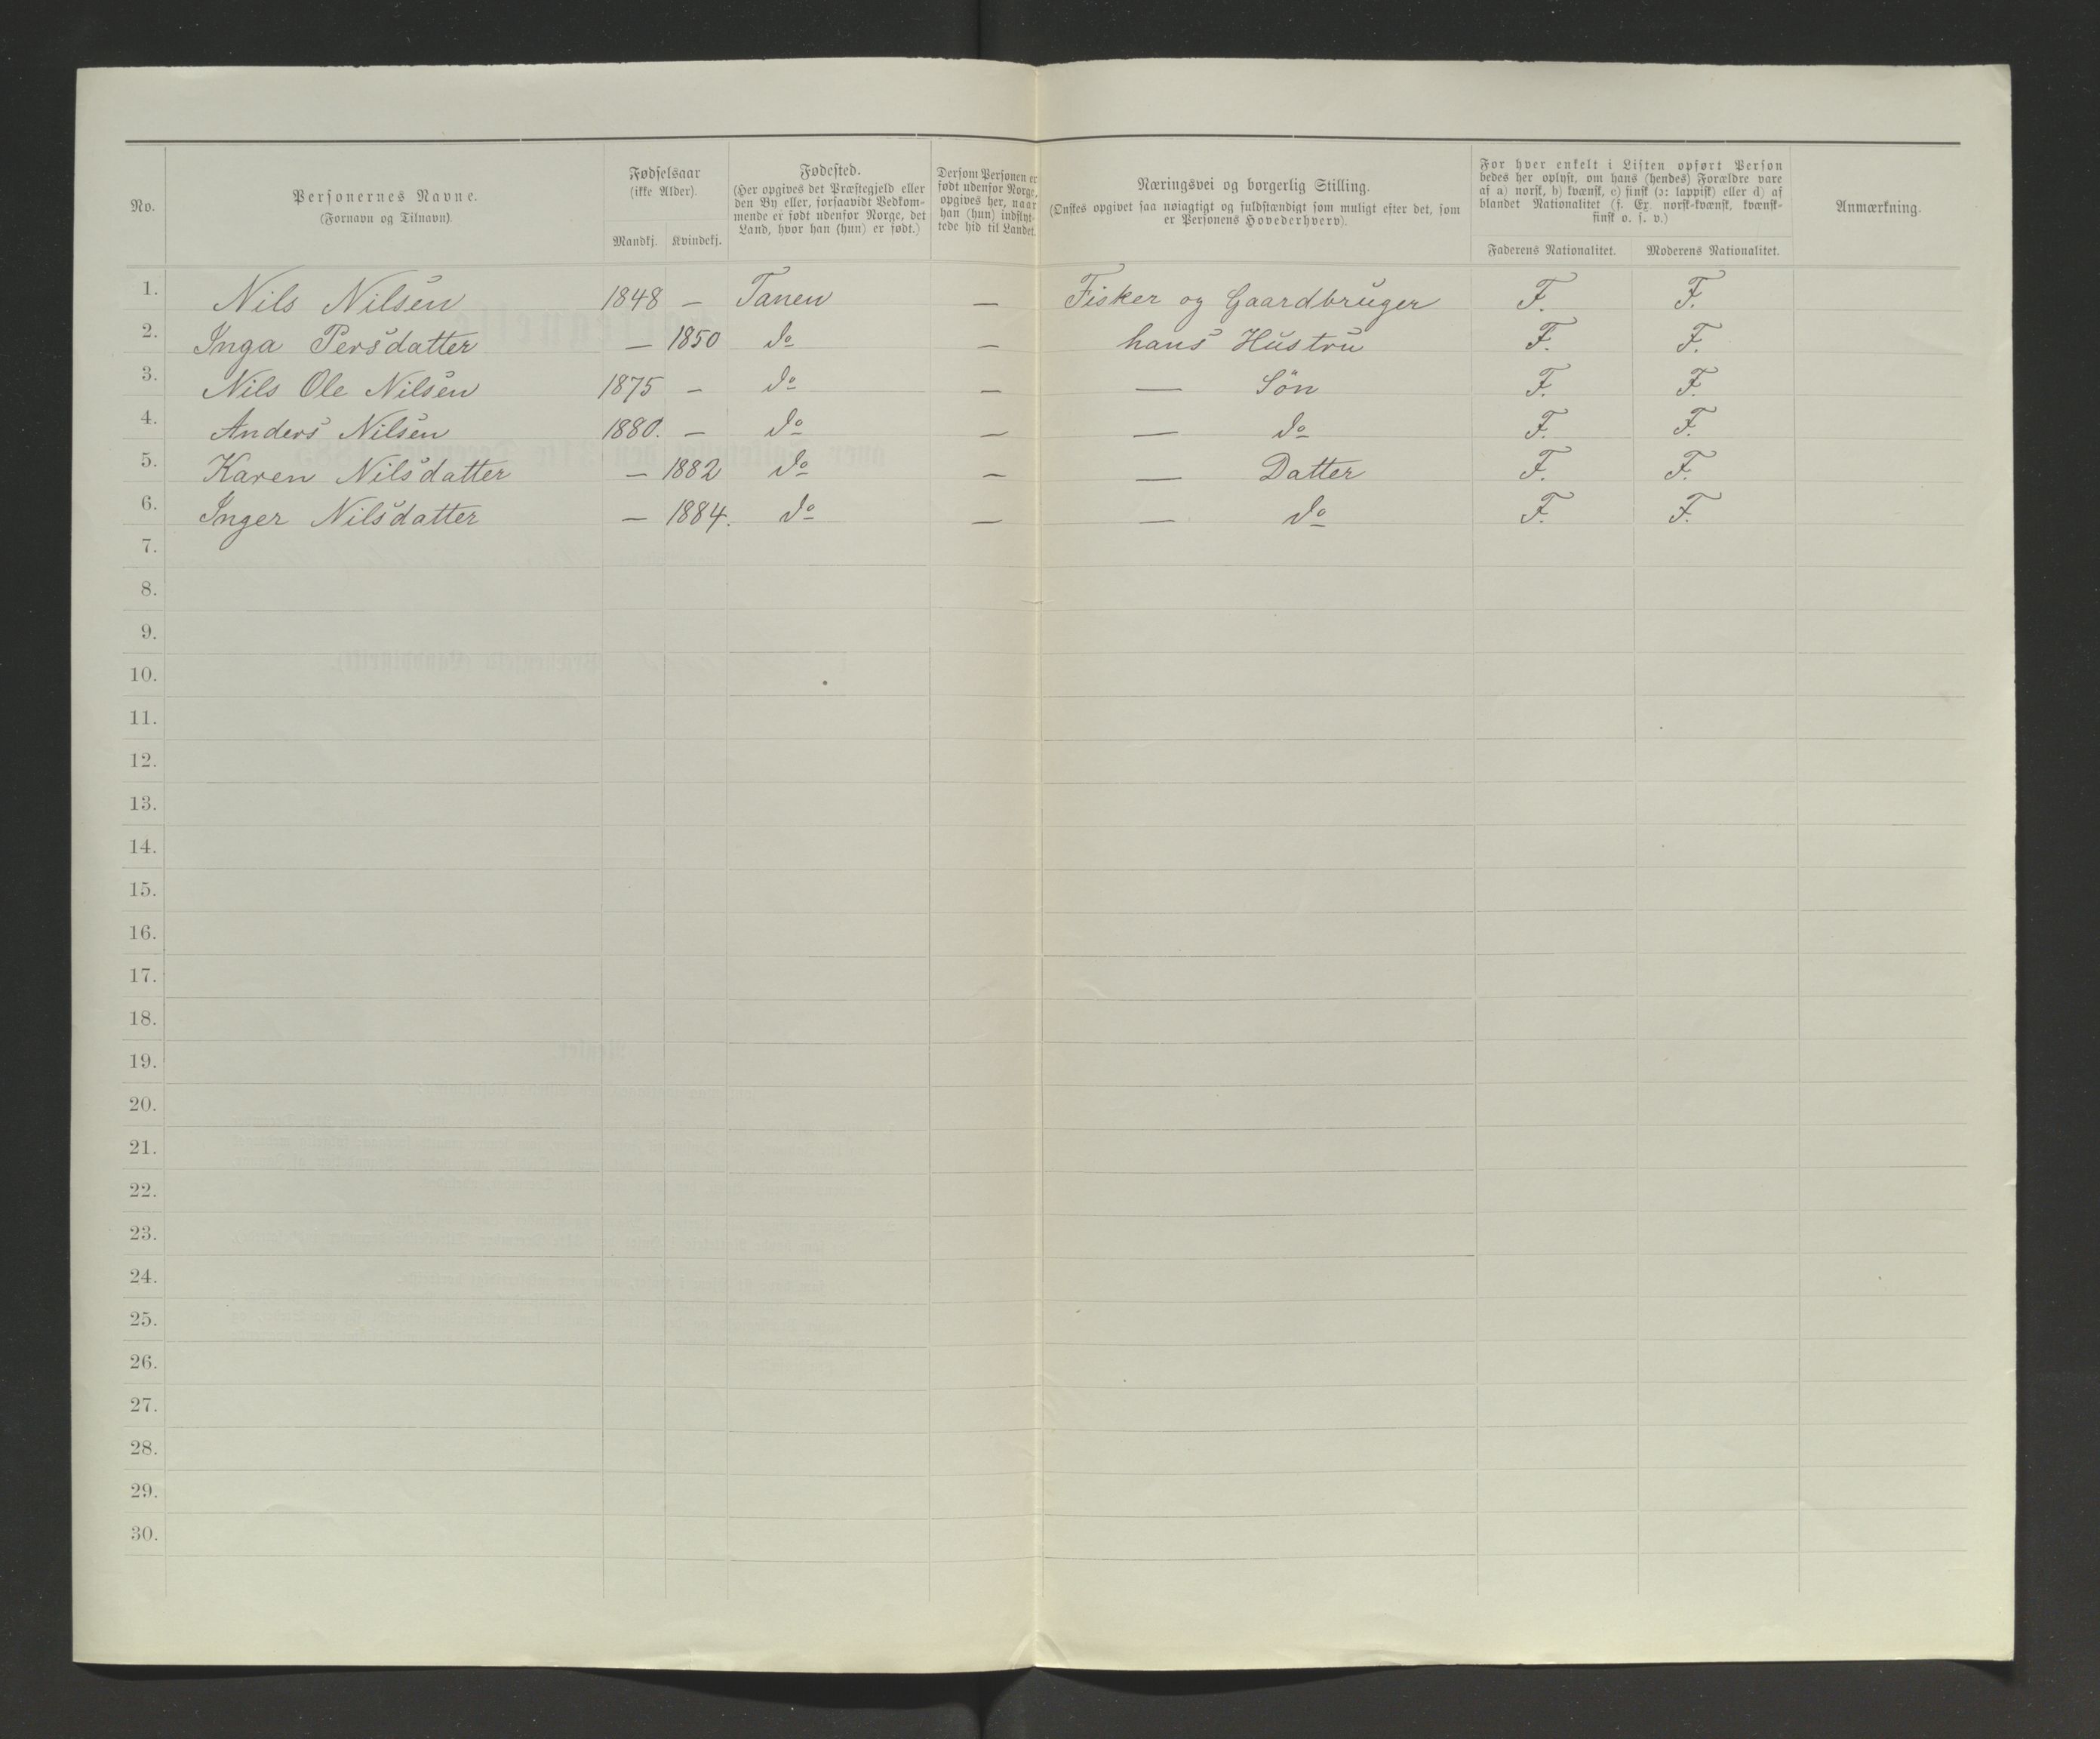 No.
Personernes Navne.
(Fornavn og Tilnavn).
Fødselsaar
(ikke Alder).
Mandkj. Kvindekj.
Fødested.
(Her opgives det Præstegjeld eller
den By eller, forsaavidt Vedkom-
mende er født udenfor Norge, det
Land, hvor han (hun) er født.)
Dersom Personen er
født udenfor Norge,
opgives her, naar
han (hun) indflyt-
tede hid til Landet.
Næringsvei og borgerlig Stilling.
(Ønskes opgivet saa nøiagtigt og fuldstændigt som muligt efter det, som
er Personens Hovederhverv).
For hver enkelt i Listen opført Person
bedes her oplyst, om hans (hendes) Forældre vare
af a) norsk, b) kvænsk, c) finsk (ɔ: lappisk) eller d) af
blandet Nationalitet (f. Ex. norsk-kvænsk, kvænsk-
finsk o. s. v.)
Faderens Nationalitet. Moderens Nationalitet.
Anmærkning.
1. Nils Nilsen 1848 — Tanen — Fisker og Gaardbruger F. F.
2. Inga Persdatter — 1850 do — hans Hustru F. F.
3. Nils Ole Nilsen 1875 — do — — Sön F. F.
4. Anders Nilsen 1880. — do — — do F. F.
5. Karen Nilsdatter — 1882 do — — Datter F. F.
6. Inger Nilsdatter — 1884. do — — do F. F.
7.
8.
9.
10.
11.
12.
13.
14.
15.
16.
17.
18.
19.
20.
21.
22.
23.
24.
25.
26.
27.
28.
29.
30.